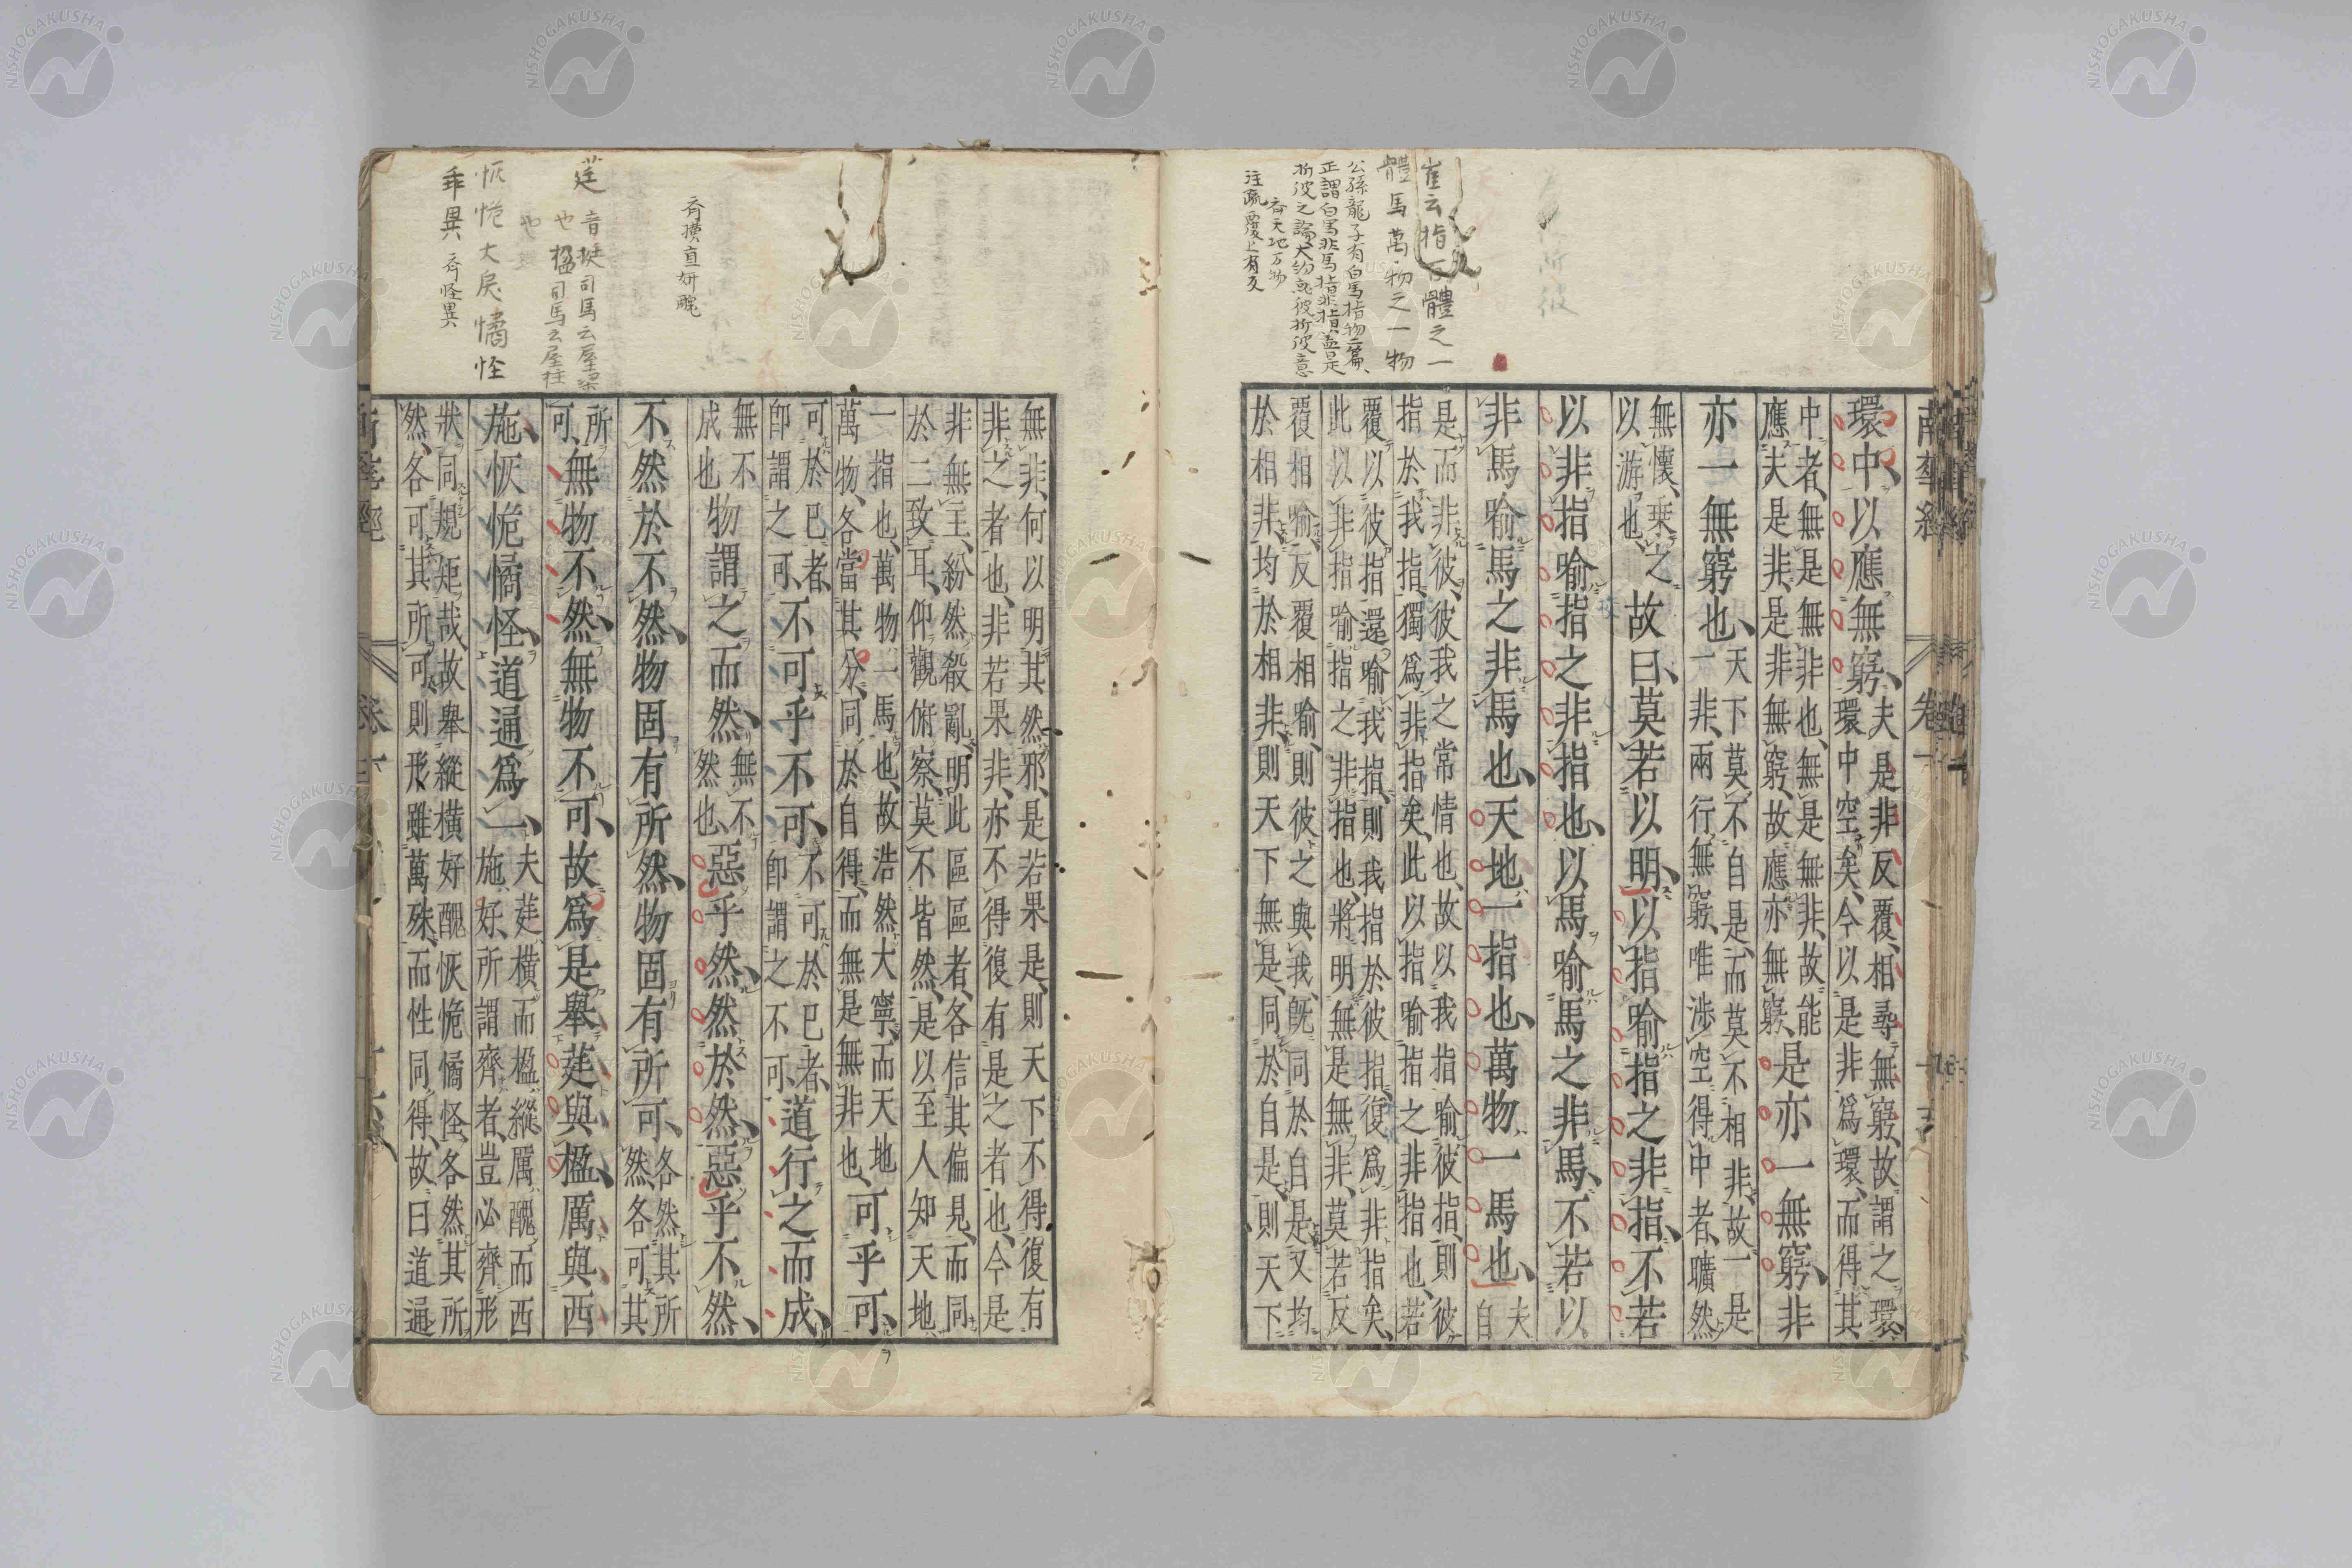 崔云指百體之一
體馬萬物之一物
公孫龍子有白馬指物二篇、
正謂白馬非馬指非指、蓋是
折彼之論、大約就彼折彼意
齊天地万物
注疏覆上有反
環中、以應無窮、
夫是非反覆、相尋無窮、故謂之環、
環中空矣、今以是非爲環、而得其
中者、無是無非也、無是無非、故能
應夫是非、是非無窮、故應亦無窮、
是亦一無窮、非
亦一無窮也、
天下莫不自是、而莫不相非、故一是
一非、兩行無窮、唯涉空得中者、曠然
無懷、乗之
以游也、
故曰、莫若以明、以指喻指之非指、不若
以非指喻指之非指也、以馬喻馬之非馬、不若以
非馬喻馬之非馬也、天地一指也、萬物一馬也、
夫
自
是而非彼、彼我之常情也、故以我指喻彼指、則彼
指於我指、獨爲非指矣、此以指喻指之非指也、若
覆以彼指還喻我指、則我指於彼指、復爲非指矣、
此以非指喻指之非指也、將明無是無非、莫若反
覆相喻、反覆相喻、則彼之與我、既同於自是、又均
於相非、均於相非、則天下無是、同於自是、則天下
南華經
卷一
齊橫直妍醜
莛 音挺司馬云屋梁
也 楹司馬云屋柱
也
恢恑大戾憰怪
乖異 齊怪異
無非、何以明其然邪、是若果是、則天下不得復有
非之者也、非若果非、亦不得復有是之者也、今是
非無主、紛然殺亂、明此區區者、各信其偏見、而同
於一致耳、仰觀俯察、莫不皆然、是以至人知天地
一指也、萬物一馬也、故浩然大寧、而天地
萬物、各當其分、同於自得、而無是無非也、
可乎可、
可於己者、
卽謂之可、
不可乎不可、
不可於己者、
卽謂之不可、
道行之而成、
無不
成也
物謂之而然、
無不
然也、
惡乎然、然於然、惡乎不然、
不然於不然、物固有所然、物固有所可、
各然其所
然、各可其
所
可、
無物不然、無物不可、故爲是擧莛與楹、厲與西
施、恢恑憰怪、道通爲一、
夫莛橫而楹縱、厲醜而西
施好、所謂齊者、豈必齊形
狀、同規矩哉、故擧縱橫好醜恢恑憰怪、各然其所
然、各可其所可、則形雖萬殊、而性同得、故曰道通